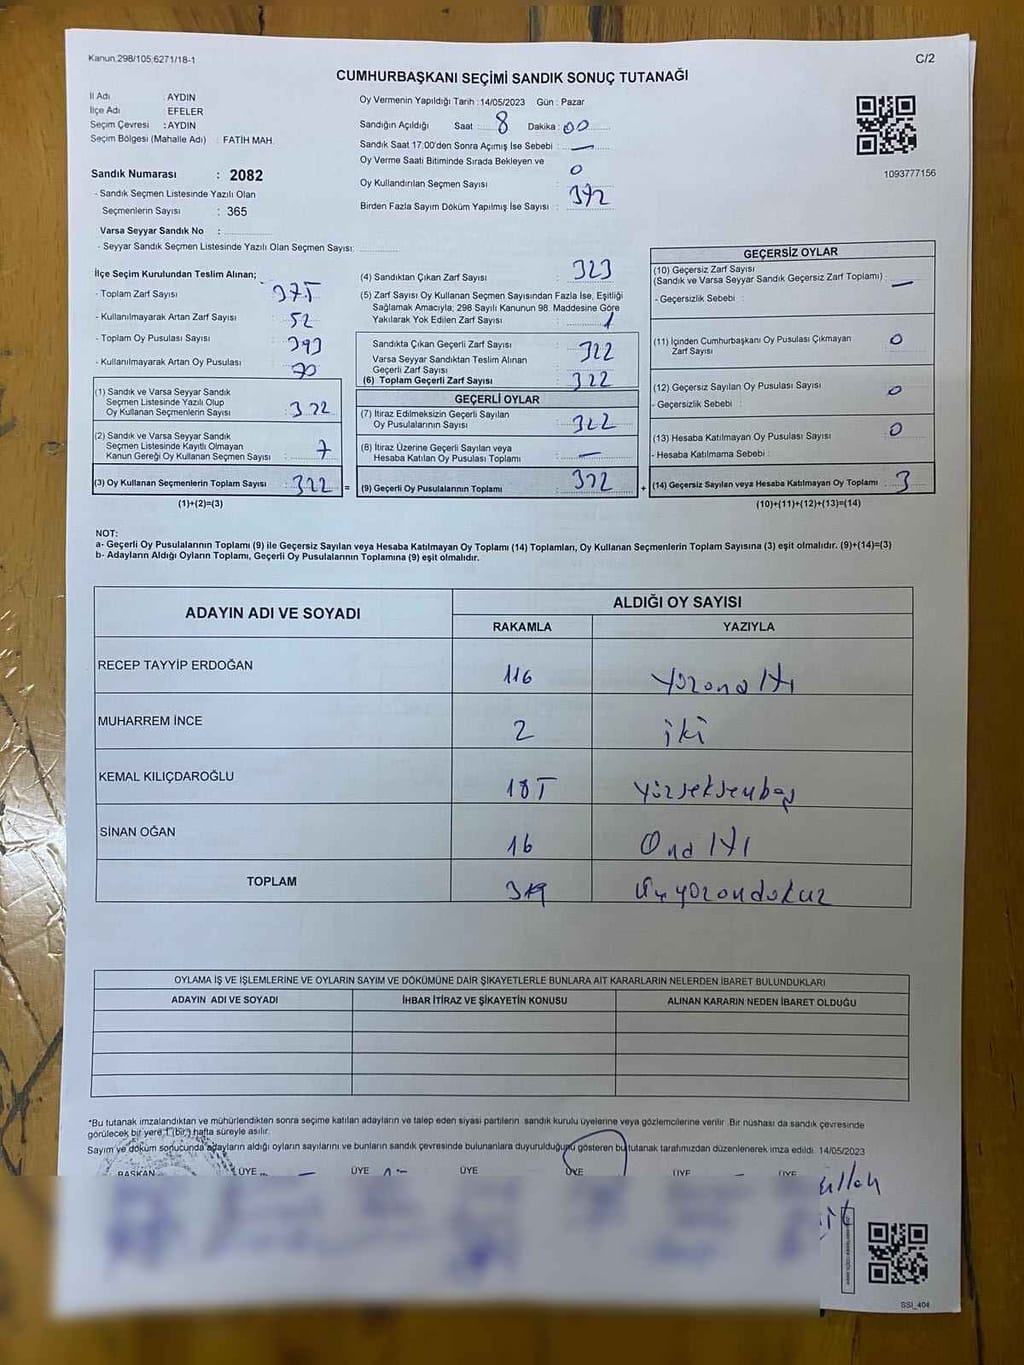 Kanun,298/105,6271/18-1
C/2
CUMHURBAŞKANI SEÇİMİ SANDIK SONUÇ TUTANAĞI
İl Adı : AYDIN
İlçe Adı : EFELER
Seçim Çevresi : AYDIN
Seçim Bölgesi (Mahalle Adı) : FATİH MAH.
Sandık Numarası : 2082
- Sandık Seçmen Listesinde Yazılı Olan
Seçmenlerin Sayısı : 365
Varsa Seyyar Sandık No :
- Seyyar Sandık Seçmen Listesinde Yazılı Olan Seçmen Sayısı:
Oy Vermenin Yapıldığı Tarih :14/05/2023 Gün : Pazar
Sandığın Açıldığı Saat : 8 Dakika : 00
Sandık Saat 17:00'den Sonra Açımış İse Sebebi : —
Oy Verme Saati Bitiminde Sırada Bekleyen ve
Oy Kullandırılan Seçmen Sayısı : 0
Birden Fazla Sayım Döküm Yapılmış İse Sayısı :
1093777156
İlçe Seçim Kurulundan Teslim Alınan;
- Toplam Zarf Sayısı : 375
- Kullanılmayarak Artan Zarf Sayısı : 52
- Toplam Oy Pusulası Sayısı : 393
- Kullanılmayarak Artan Oy Pusulası : 70
(1) Sandık ve Varsa Seyyar Sandık
Seçmen Listesinde Yazılı Olup
Oy Kullanan Seçmenlerin Sayısı :
(2) Sandık ve Varsa Seyyar Sandık
Seçmen Listesinde Kayıtlı Olmayan
Kanun Gereği Oy Kullanan Seçmen Sayısı : 7
(3) Oy Kullanan Seçmenlerin Toplam Sayısı : 322 =
(1)+(2)=(3)
(4) Sandıktan Çıkan Zarf Sayısı : 323
(5) Zarf Sayısı Oy Kullanan Seçmen Sayısından Fazla İse, Eşitliği
Sağlamak Amacıyla; 298 Sayılı Kanunun 98. Maddesine Göre
Yakılarak Yok Edilen Zarf Sayısı : 1
Sandıkta Çıkan Geçerli Zarf Sayısı : 322
Varsa Seyyar Sandıktan Teslim Alınan
Geçerli Zarf Sayısı :
(6) Toplam Geçerli Zarf Sayısı : 322
GEÇERLİ OYLAR
(7) İtiraz Edilmeksizin Geçerli Sayılan
Oy Pusulalarının Sayısı : 322
(8) İtiraz Üzerine Geçerli Sayılan veya
Hesaba Katılan Oy Pusulası Toplamı : —
(9) Geçerli Oy Pusulalarının Toplamı : 322 +
GEÇERSİZ OYLAR
(10) Geçersiz Zarf Sayısı
(Sandık ve Varsa Seyyar Sandık Geçersiz Zarf Toplamı) : —
- Geçersizlik Sebebi :
(11) İçinden Cumhurbaşkanı Oy Pusulası Çıkmayan
Zarf Sayısı : 0
(12) Geçersiz Sayılan Oy Pusulası Sayısı : 0
- Geçersizlik Sebebi :
(13) Hesaba Katılmayan Oy Pusulası Sayısı : 0
- Hesaba Katılmama Sebebi :
(14) Geçersiz Sayılan veya Hesaba Katılmayan Oy Toplamı : 3
(10)+(11)+(12)+(13)=(14)
NOT:
a- Geçerli Oy Pusulalarının Toplamı (9) ile Geçersiz Sayılan veya Hesaba Katılmayan Oy Toplamı (14) Toplamları, Oy Kullanan Seçmenlerin Toplam Sayısına (3) eşit olmalıdır. (9)+(14)=(3)
b- Adayların Aldığı Oyların Toplamı, Geçerli Oy Pusulalarının Toplamına (9) eşit olmalıdır.
ADAYIN ADI VE SOYADI
ALDIĞI OY SAYISI
RAKAMLA YAZIYLA
RECEP TAYYİP ERDOĞAN 116 Yüzonaltı
MUHARREM İNCE 2 iki
KEMAL KILIÇDAROĞLU 185 Yüzseksenbeş
SİNAN OĞAN 16 Onaltı
TOPLAM 319 Üçyüzondokuz
OYLAMA İŞ VE İŞLEMLERİNE VE OYLARIN SAYIM VE DÖKÜMÜNE DAİR ŞİKAYETLERLE BUNLARA AİT KARARLARIN NELERDEN İBARET BULUNDUKLARI
ADAYIN ADI VE SOYADI İHBAR İTİRAZ VE ŞİKAYETİN KONUSU ALINAN KARARIN NEDEN İBARET OLDUĞU
*Bu tutanak imzalandıktan ve mühürlendikten sonra seçime katılan adayların ve talep eden siyasi partilerin sandık kurulu üyelerine veya gözlemcilerine verilir. Bir nüshası da sandık çevresinde
görülecek bir yere 1 (bir) hafta süreyle asılır.
Sayım ve döküm sonucunda adayların aldığı oyların sayılarını ve bunların sandık çevresinde bulunanlara duyurulduğunu gösteren bu tutanak tarafımızdan düzenlenerek imza edildi. 14/05/2023
BAŞKAN ÜYE ÜYE ÜYE ÜYE ÜYE ÜYE
SSI_404